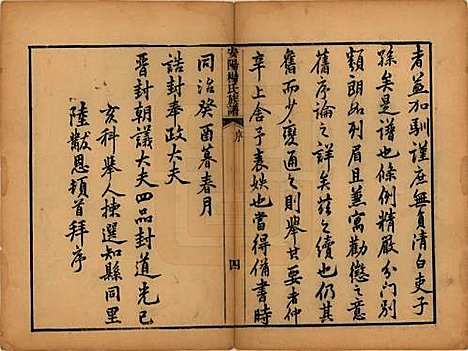 者益加馴謹庶無負清白吏子
孫矣是譜也條例精嚴分門別
類朗如列眉且兼寓勸懲之意
舊序論之詳矣茲之續也仍其
舊而少變通之則舉其要者仲
辛上舍子表姝也當得備書時
安陽楊氏族譜
序
四
同治癸酉暮春月
誥封奉政大夫
晉封朝議大夫四品封道光己
亥科舉人揀選知縣同里
陸黻恩頓首拜序